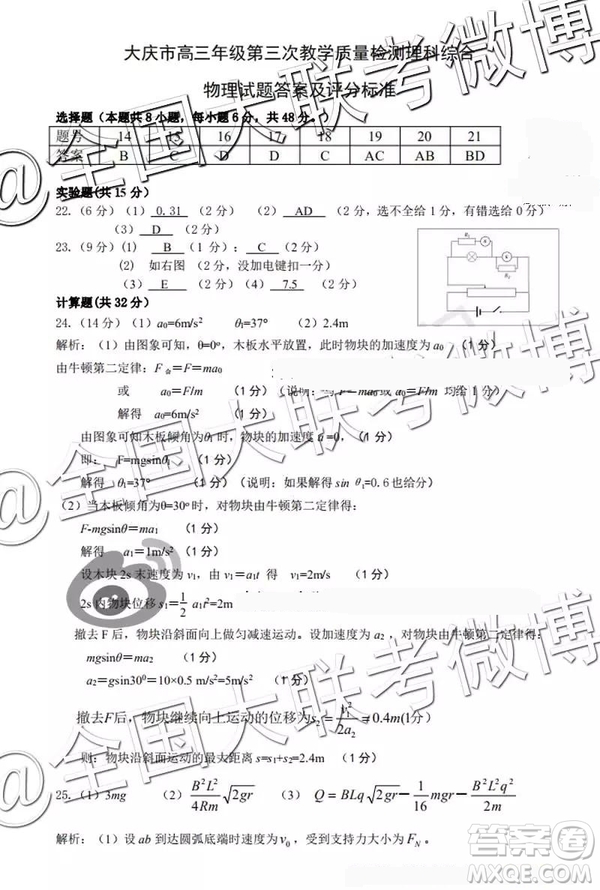 大庆市高三年级第三次教学质量检测理科综合
物理试题答案及评分标准
选择题（本题共8小题，每小题6分，共48分。）
题号 14 15 16 17 18 19 20 21
答案 B C D D C AC AB BD
实验题(共15分)
22.（6分）（1） 0.31 （2分） （2） AD （2分，选不全给1分，有错选给0分）
（3） D （2分）
23.（9分）(1) B （1分）； C （2分）
(2) 如右图 （2分，没加电键扣一分）
（3） E （2分） （4） 7.5 （2分）
计算题(共32分)
24.（14分）（1）a₀=6m/s² θ₁=37° （2）2.4m
解析：（1）由图象可知，θ=0°，木板水平放置，此时物块的加速度为a₀ （1分）
由牛顿第二定律：F合=F=ma₀
或 a₀=F/m （1分）（说明：均 F=ma₀或 a₀=F/m 均给1分）
解得 a₀=6m/s² （1分）
由图象可知木板倾角为θ₁时，物块的加速度a=0，（1分）
即： F=mgsinθ₁ （1分）
解得 θ₁=37° （1分）（说明：如果解得sin θ₁=0.6也给分）
（2）当木板倾角为θ=30°时，对物块由牛顿第二定律得：
F-mgsinθ=ma₁ （1分）
解得 a₁=1m/s² （1分）
设木块2s末速度为v₁，由v₁=a₁t 得 v₁=2m/s （1分）
2s内物块位移s₁=1/2 a₁t²=2m
撤去F后，物块沿斜面向上做匀减速运动。设加速度为a₂，对物块由牛顿第二定律得：
mgsinθ=ma₂ （1分）
a₂=gsin30⁰=10×0.5 m/s²=5m/s² （1分）
撤去F后，物块继续向上运动的位移为s₂=v₁²/2a₂=0.4m(1分)
则：物块沿斜面运动的最大距离s=s₁+s₂=2.4m （1分）
25.（1）3mg （2）B²L²/4Rm √2gr （3）Q=BLq√2gr−1/16 mgr−B²L²q²/2m
解析：（1）设ab到达圆弧底端时速度为v₀，受到支持力大小为F_N。
@全国大联考微博
@全国大联考微博
@全国大联考微博
答案圈
MXQE.COM